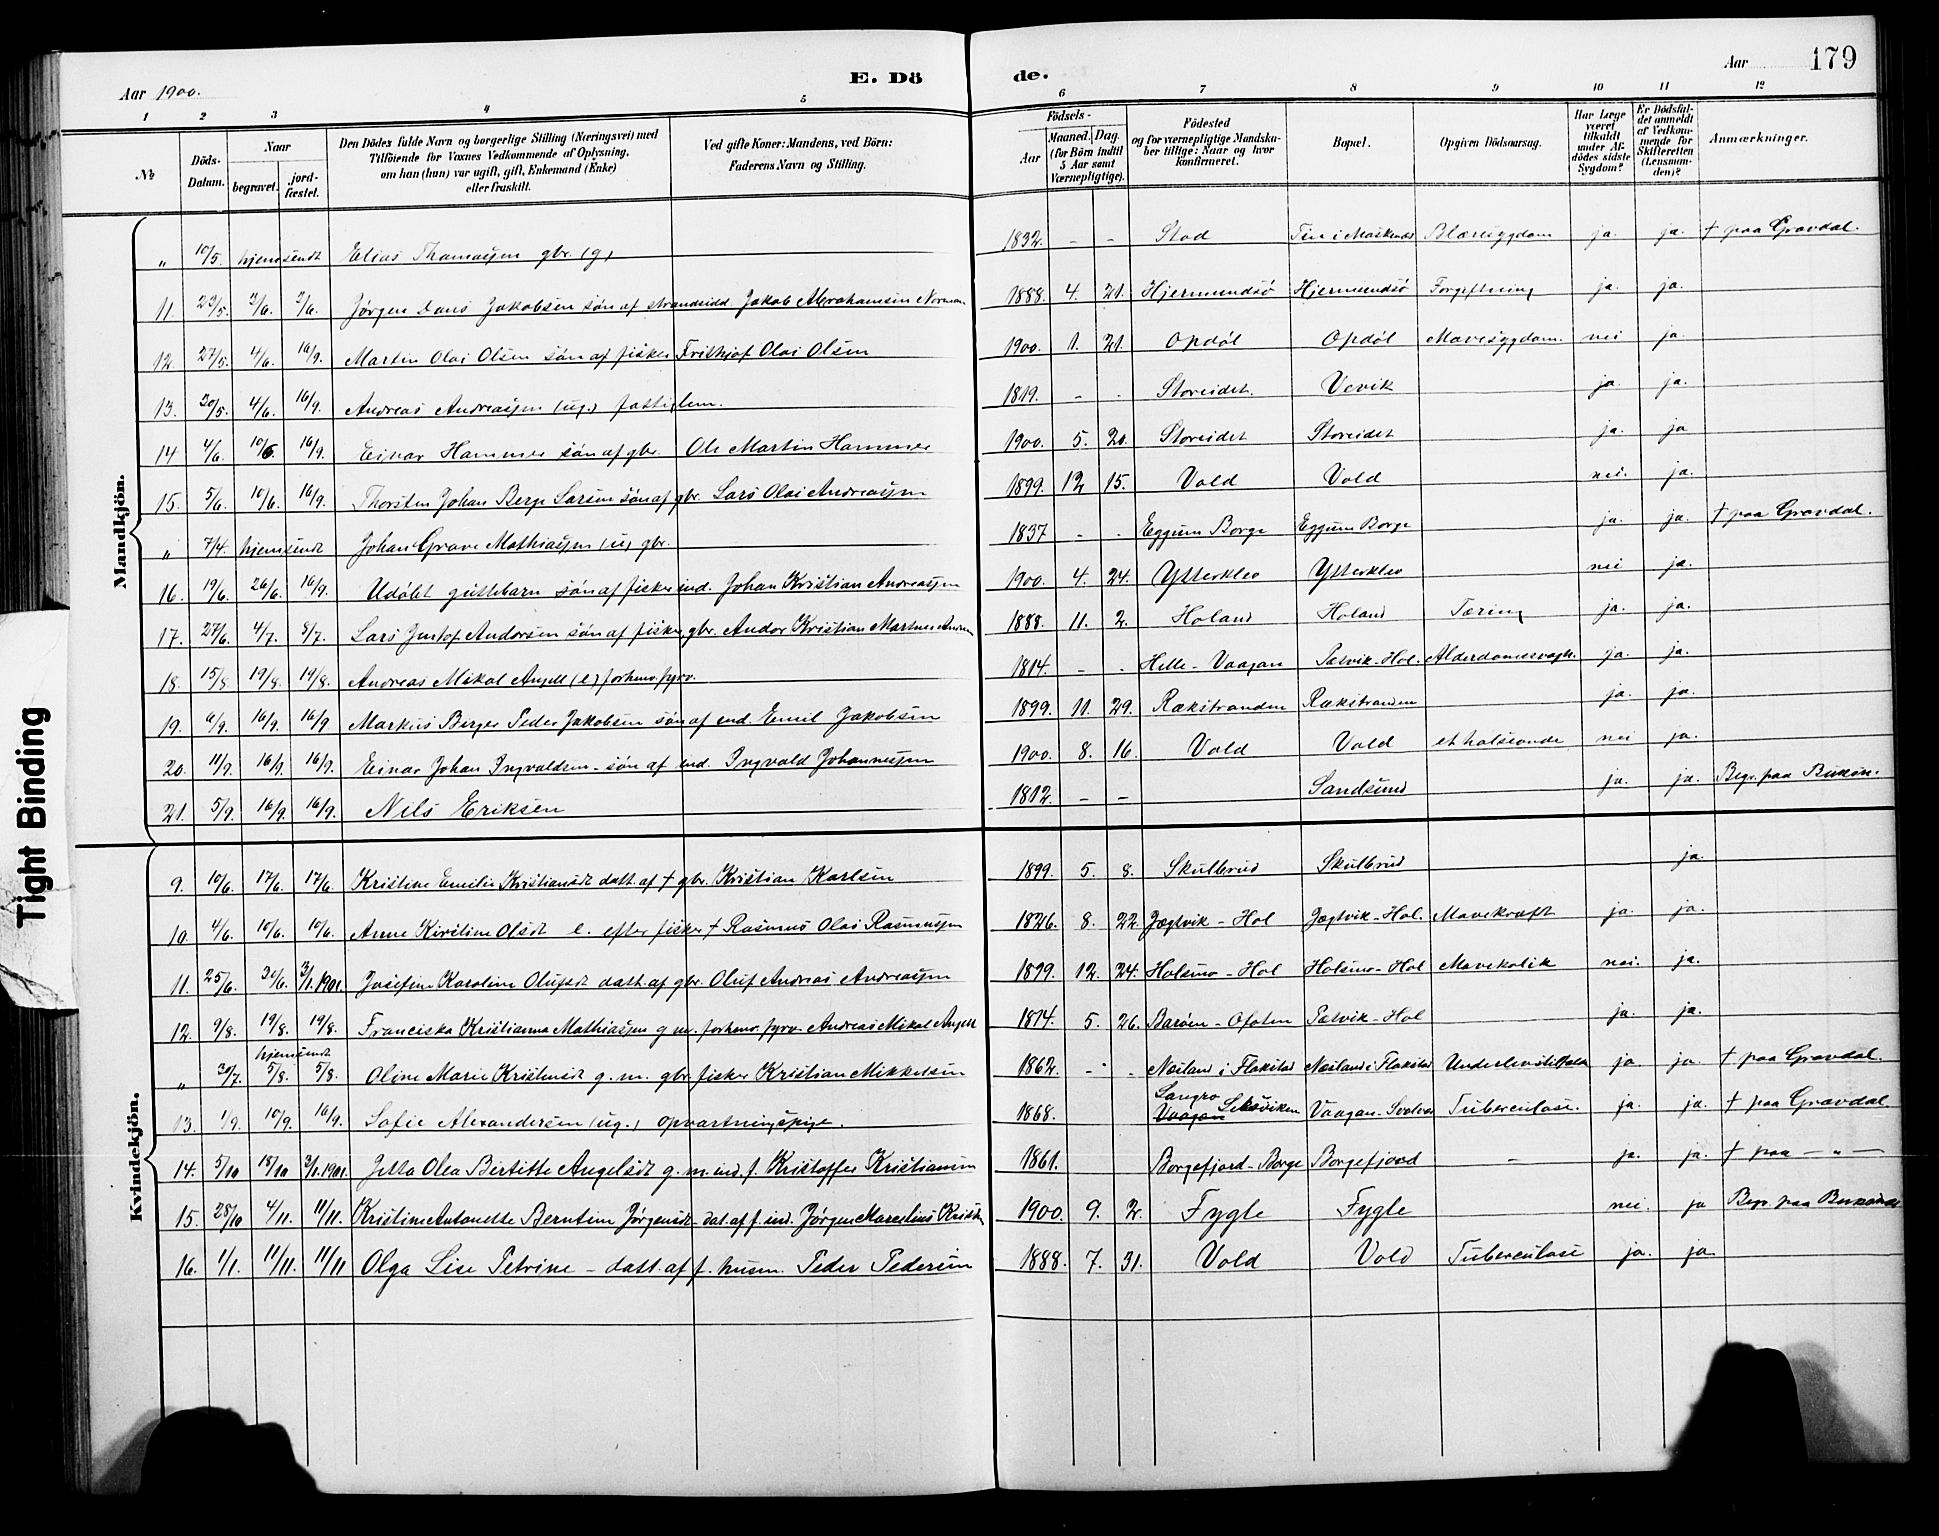 Aar 1900. E. Dö de. Aar 179
1 2 3 4 5 6 7 8 9 10 11 12
No
Döds-Datum.
Naar begravet. jord-fæstet.
Den Dödes fulde Navn og borgerlige Stilling (Næringsvei) med Tilföiende for Voxnes Vedkommende af Oplysning, om han (hun) var ugift, gift, Enkemand (Enke) eller fraskilt.
Ved gifte Koner: Mandens, ved Börn: Faderens Navn og Stilling.
Födsels- Aar Maaned. Dag. (for Börn indtil 5 Aar samt Værnepligtige).
Födested og for værnepligtige Mandskaber tillige: Naar og hvor konfirmeret.
Bopæl.
Opgiven Dödsaarsag.
Har Læge været tilkaldt under Afdödes sidste Sygdom?
Er Dödsfaldet anmeldt af Vedkommende for Skifteretten (Lensmanden)?
Anmærkninger.
Mandkjön.
" 10/5. hjemsendt Elias Thomassen gbr. (g) 1832. - - Stod Moskenæs Blæresygdom ja. ja. † paa Gravdal.
11. 23/5. 3/6. 3/6. Jørgen Jakobsen søn af strandsidd. Jakob Abrahamsen 1888. 4. 21. Hjermundsö Hjermundsö Forgiftning ja. ja.
12. 27/5. 4/6. 16/9. Martin Olai Olsen søn af fisker Frithjof Olai Olsen 1900. 1. 21. Opdøl Opdøl Mavesygdom. nei ja.
13. 30/5. 4/6. 16/9. Andreas Andreassen (ug.) fattiglem. 1819. - - Storeidet. Vevik ja. ja.
14 4/6. 10/6 16/9. Einar Hammer søn af gbr. Ole Martin Hammer 1900. 5. 20. Storeidet Storeidet ja. ja
15. 5/6. 10/6. 16/9. Thorsten Johan Berge Larsen søn af gbr. Lars Olai Andreassen 1899. 12 15. Vold Vold nei. ja.
" 7/4. hjemsendt Johan Grave Mathiassen (u) gbr. 1837 - - Eggum Borge Eggum Borge ja. ja. † paa Gravdal.
16. 19/6. 26/6. 16/9. Udøbt guttebarn søn af fisker ind. Johan Kristian Andreassen 1900. 4. 24. Ytterklev Ytterklev nei ja.
17. 27/6. 4/7. 8/7. Lars Andorsen søn af fisker gbr. Andor Kristian 1888. 11. 2. Holand Holand Tæring ja. ja.
18. 15/8. 19/8. 19/8. Andreas Mikal Angell (e) forhenv. fyrv. 1814. - - Helle - Vaagan Pætvik - Hol. ja. ja.
19. 6/9. 16/9. 16/9 Markus Berger Peder Jakobsen søn af ind. Emil Jakobsen 1899. 11. 29. Rækstranden Rækstranden ja. ja.
20. 11/9. 16/9. 16/9. Einar Johan Ingvaldsen - søn af ind. Ingvald Johannessen 1900. 8. 16. Vold Vold et halsonde nei ja.
21. 5/9. 16/9. 16/9. Nils Eriksen 1812. - - Sandsund ja. ja. Begr. paa
Kvindekjön.
9. 10/6. 17/6. 17/6. Kristine Emilie Kristiansdt datt. af † gbr. Kristian Karlsen 1899. 5. 8. Skulbrud Skulbrud ja.
10. 4/6. 10/6. 10/6. Anne Kirstine Olsdt e. efter fisker † Rasmus Olai Rasmussen 1826. 8. 22. Jægtvik - Hol Jægtvik - Hol. Mavekræft ja. ja.
11. 25/6. 3/1.1901. Josefine Karoline Olufsdt datt. af gbr. Oluf Andreas Andreassen 1899. 12. 24. Holsmo - Hol Holsmo - Hol Mavekolik nei. ja.
12. 9/8. 19/8. 19/8. Franciska Kristianna Mathiassen g. m. forhenv. fyrv. Andreas Mikal Angell 1814. 5. 26. Barøen - Ofoten Pætvik - Hol ja. ja.
" 30/7. hjemsendt 5/8. 5/8. Oline Marie Kristensdt g. m. gbr. fisker Kristian Mikkelsen 1862. - - Næsland i Flakstad Næsland i Flakstad ja ja. † paa Gravdal.
13. 1/9. 10/9. 16/9. Sofie Alexandersen (ug.) opvartningspige. 1868. Vaagan Leksviken Vaagan - Svolvær Tuberculose. ja. ja. † paa Gravdal
14. 5/10 3/1.1901. Jetta Olea Bertitte Angelsdt g. m. ind. f. Kristoffer Kristiansen 1861. Borgefjord - Borge Borgefjord - ja. ja. † paa - " -
15. 28/10 4/11. 11/11. Kristine Antonette Berntine Jørgensdt dat. af f. ind. Jørgen 1900. 9. 2. Fygle Fygle nei. ja Begr. paa
16. 1/1. 11/11. 11/11 Olga Lise Petrine - datt. af f. husm. Peder Pedersen 1888. 7. 31. Vold Vold Tuberculose ja. ja
Tight Binding